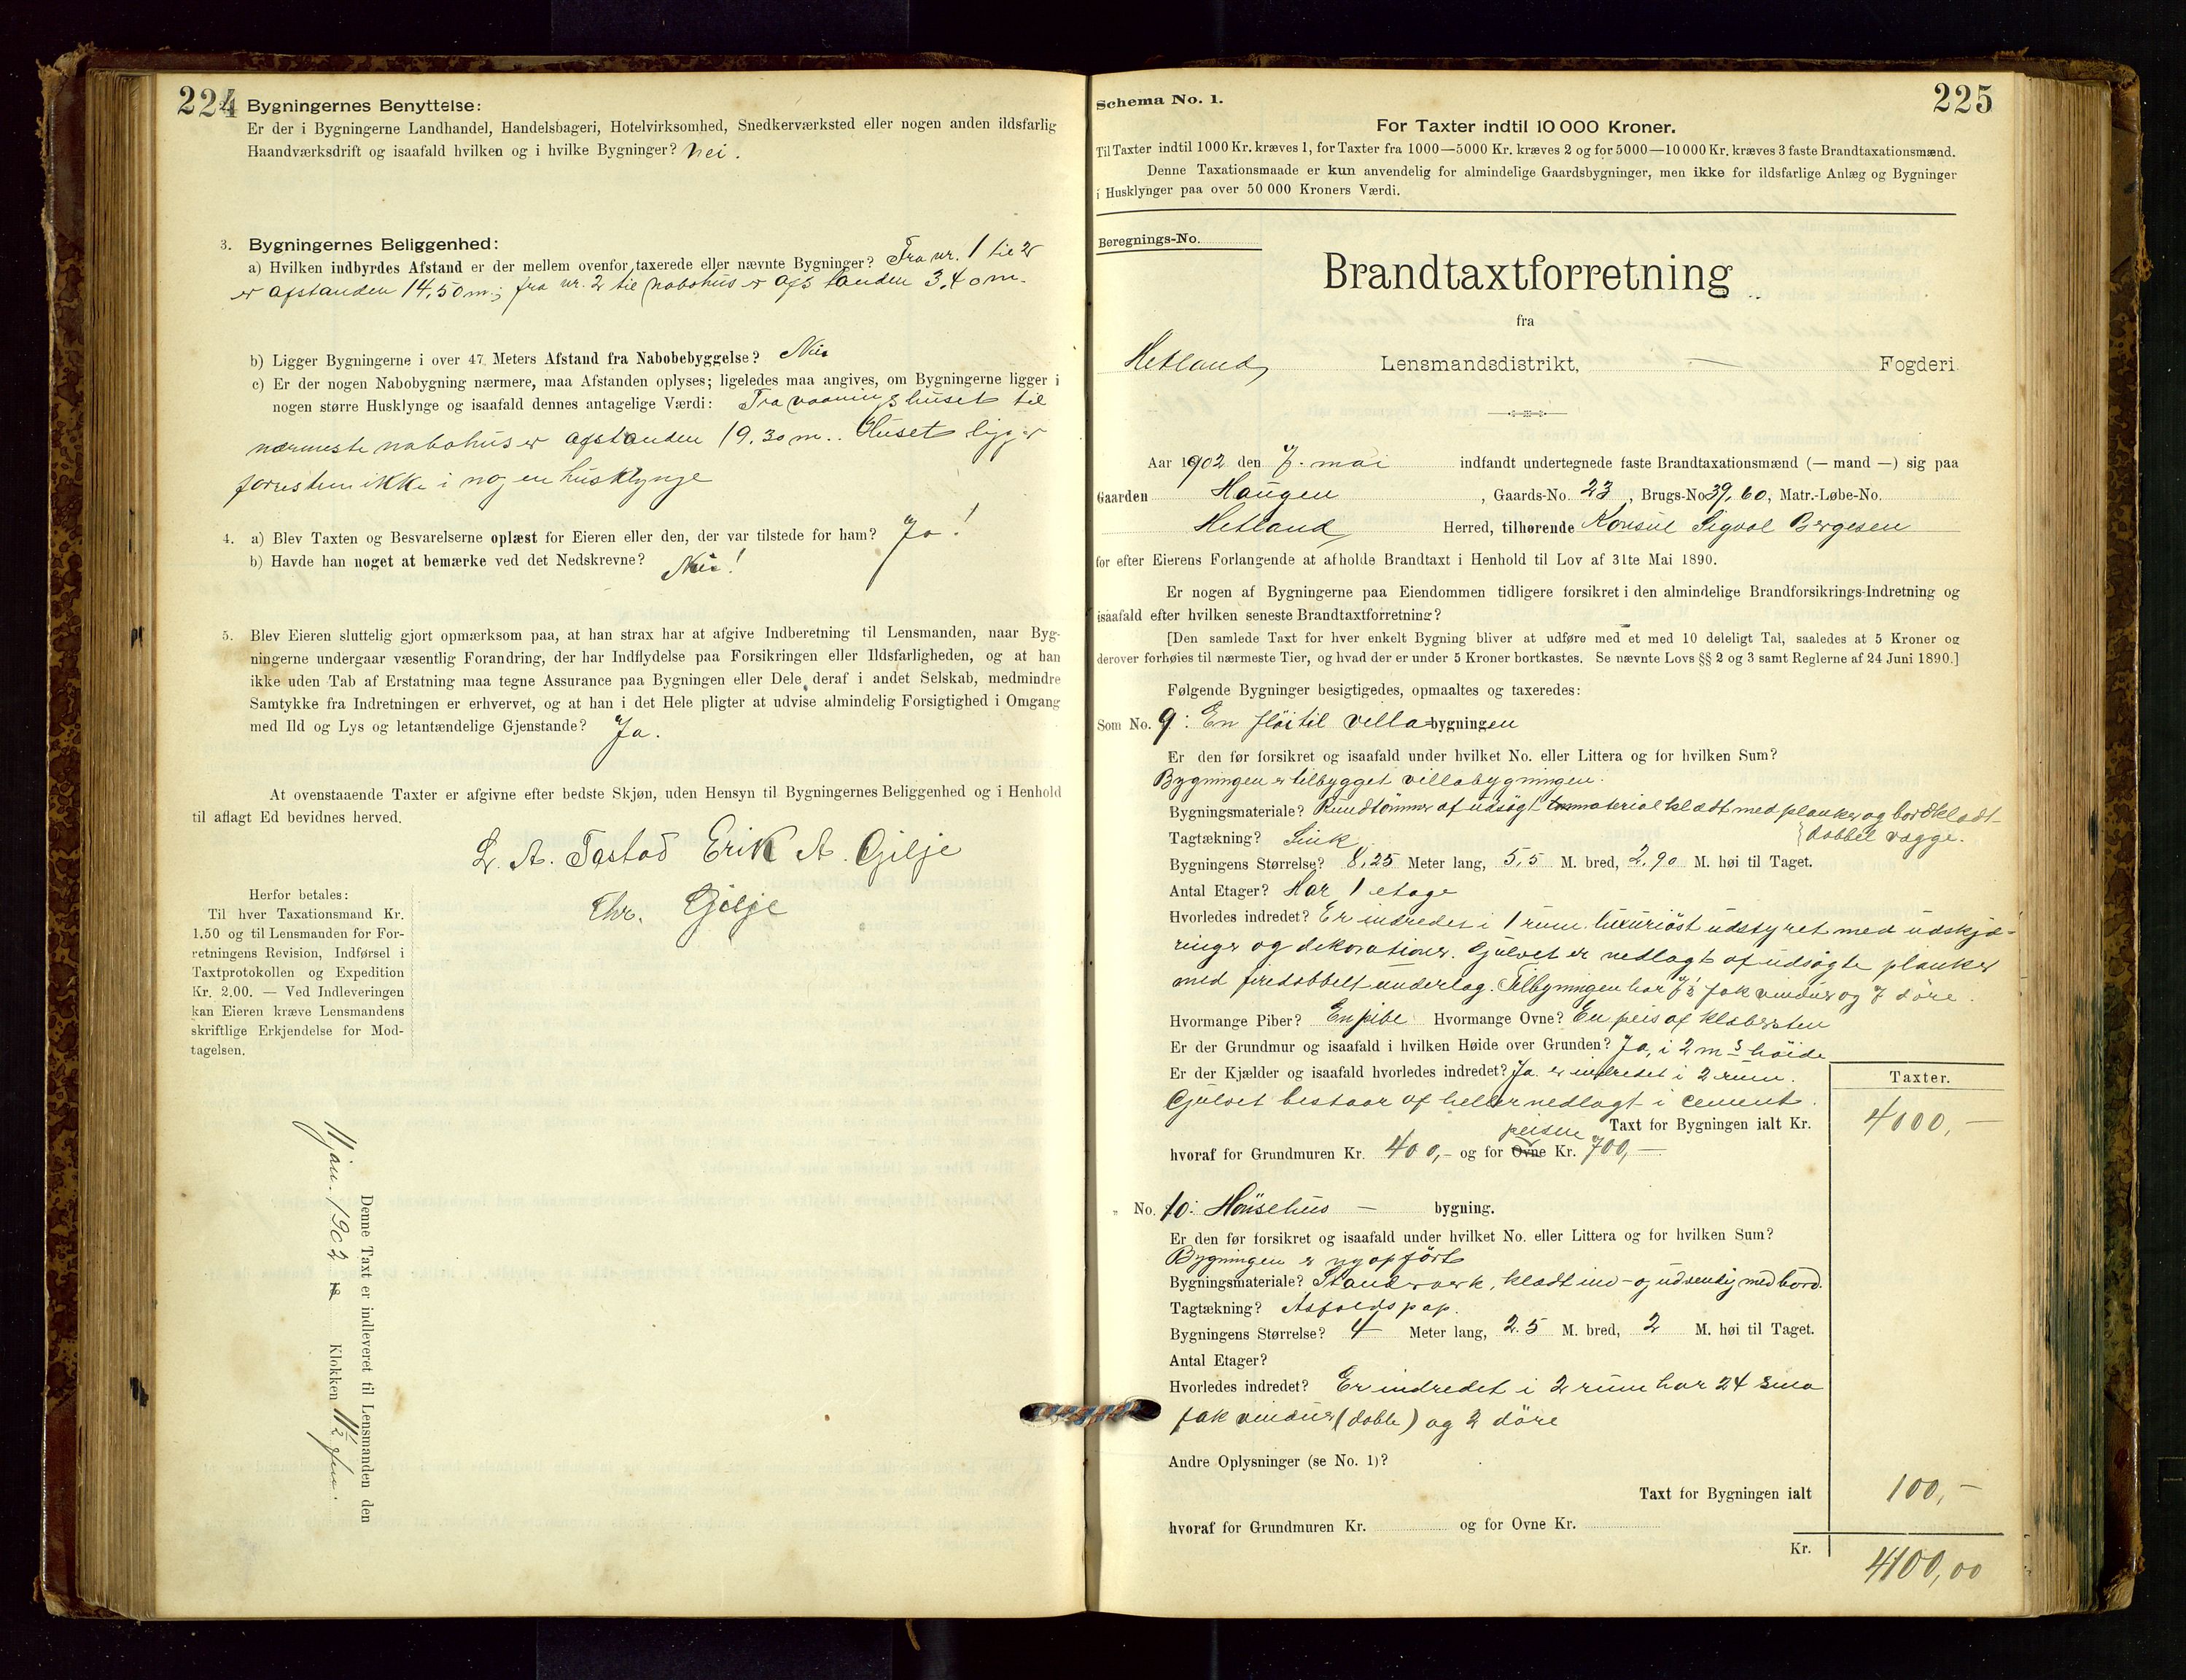 224
Bygningernes Benyttelse:
Er der i Bygningerne Landhandel, Handelsbageri, Hotelvirksomhed, Snedkerværksted eller nogen anden ildsfarlig
Haandværksdrift og isaafald hvilken og i hvilke Bygninger? Nei.
3. Bygningernes Beliggenhed:
a) Hvilken indbyrdes Afstand er der mellem ovenfor taxerede eller nævnte Bygninger? Fra nr. 1 til 2
er afstanden 14,50 m.; fra nr. 2 til nabohus er afstanden 3,40 m.
b) Ligger Bygningerne i over 47 Meters Afstand fra Nabobebyggelse? Nei
c) Er der nogen Nabobygning nærmere, maa Afstanden oplyses; ligeledes maa angives, om Bygningerne ligger i
nogen større Husklynge og isaafald dennes antagelige Værdi: Fra vaaningshuset til
nærmeste nabohus er afstanden 19,30 m.. Huset ligger
forresten ikke i nogen husklynge
4. a) Blev Taxten og Besvarelserne oplæst for Eieren eller den, der var tilstede for ham? Ja!
b) Havde han noget at bemærke ved det Nedskrevne? Nei!
5. Blev Eieren sluttelig gjort opmærksom paa, at han strax har at afgive Indberetning til Lensmanden, naar Byg-
ningerne undergaar væsentlig Forandring, der har Indflydelse paa Forsikringen eller Ildsfarligheden, og at han
ikke uden Tab af Erstatning maa tegne Assurance paa Bygningen eller Dele deraf i andet Selskab, medmindre
Samtykke fra Indretningen er erhvervet, og at han i det Hele pligter at udvise almindelig Forsigtighed i Omgang
med Ild og Lys og letantændelige Gjenstande? Ja.
At ovenstaaende Taxter er afgivne efter bedste Skjøn, uden Hensyn til Bygningernes Beliggenhed og i Henhold
til aflagt Ed bevidnes herved.
L. A. Tastad Erik A. Gilje
Chr. Gilje
Herfor betales:
Til hver Taxationsmand Kr.
1.50 og til Lensmanden for For-
retningens Revision, Indførsel i
Taxtprotokollen og Expedition
Kr. 2.00. — Ved Indleveringen
kan Eieren kræve Lensmandens
skriftlige Erkjendelse for Mod-
tagelsen.
Denne Taxt er indleveret til Lensmanden den
11 jan. 1902 Klokken 11½ fm.
225
Schema No. 1.
For Taxter indtil 10 000 Kroner.
Til Taxter indtil 1000 Kr. kræves 1, for Taxter fra 1000—5000 Kr. kræves 2 og for 5000—10 000 Kr. kræves 3 faste Brandtaxationsmænd.
Denne Taxationsmaade er kun anvendelig for almindelige Gaardsbygninger, men ikke for ildsfarlige Anlæg og Bygninger
i Husklynger paa over 50 000 Kroners Værdi.
Beregnings-No.
Brandtaxtforretning
fra
Hetland Lensmandsdistrikt, — Fogderi
Aar 1902 den 7. mai indfandt undertegnede faste Brandtaxationsmænd (— mand —) sig paa
Gaarden Haugen, Gaards-No. 23, Brugs-No 39, 60, Matr.-Løbe-No.
Hetland Herred, tilhørende Konsul Sigval Bergesen
for efter Eierens Forlangende at afholde Brandtaxt i Henhold til Lov af 31te Mai 1890.
Er nogen af Bygningerne paa Eiendommen tidligere forsikret i den almindelige Brandforsikrings-Indretning og
isaafald efter hvilken seneste Brandtaxtforretning?
[Den samlede Taxt for hver enkelt Bygning bliver at udføre med et med 10 deleligt Tal, saaledes at 5 Kroner og
derover forhøies til nærmeste Tier, og hvad der er under 5 Kroner bortkastes. Se nævnte Lovs §§ 2 og 3 samt Reglerne af 24 Juni 1890.]
Følgende Bygninger besigtigedes, opmaaltes og taxeredes:
Som No. 9: En fløi til villabygningen
Er den før forsikret og isaafald under hvilket No. eller Littera og for hvilken Sum?
Bygningen er tilbygget villabygningen.
Bygningsmateriale? Rundtømmer af udsøgt material klædt med planker og bordklædt
dobbel vægge.
Tagtækning? Sink
Bygningens Størrelse? 8,25 Meter lang, 5,5 M. bred, 2,90 M. høi til Taget.
Antal Etager? Har 1 etage
Hvorledes indredet? Er indredet i 1 rum luxuriøst udstyret med udskjæ-
ringer og dekorationer. Gulvet er nedlagt af udsøgte planker
med firedobbelt underlag. Tilbygningen har fak vinduer og 7 døre.
Hvormange Piber? En pibe Hvormange Ovne? En peis af klæbersten
Er der Grundmur og isaafald i hvilken Høide over Grunden? Ja, i 2 m s høide
Er der Kjælder og isaafald hvorledes indredet? Ja er indredet i 2 rum.
Gulvet bestaar af heller nedlagt i cement.
Taxter.
Taxt for Bygningen ialt Kr. 4000,—
peisen
hvoraf for Grundmuren Kr. 400,- og for Ovne Kr. 700,—
" No. 10: Hønsehus — bygning.
Er den før forsikret og isaafald under hvilket No. eller Littera og for hvilken Sum?
Bygningen er nyopført
Bygningsmateriale? Standværk, klædt ind- og udvendig med bord.
Tagtækning? Asfaldspap.
Bygningens Størrelse? 4 Meter lang, 2.5 M. bred, 2 M. høi til Taget.
Antal Etager?
Hvorledes indredet? Er indredet i 2 rum har 24 sma
fak vinduer (doble) og 2 døre
Andre Oplysninger (se No. 1)?
Taxt for Bygningen ialt 100,—
hvoraf for Grundmuren Kr. og for Ovne Kr.
Kr. 4100,00